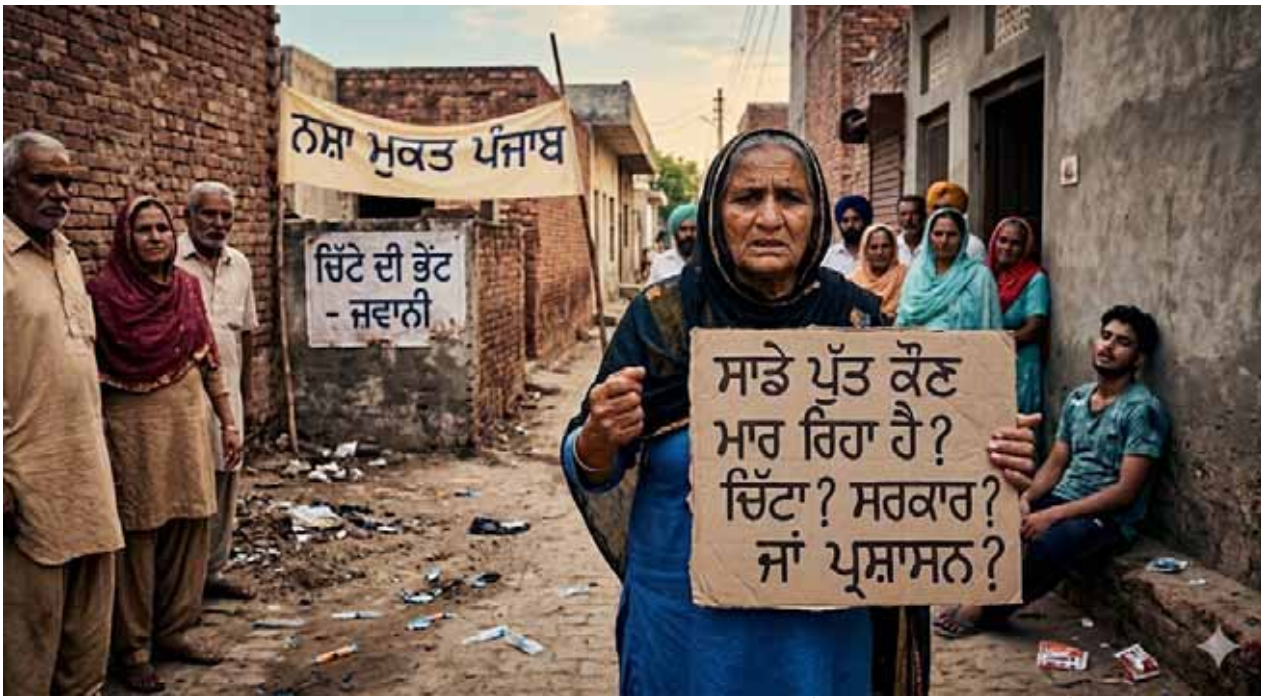 ਨਸ਼ਾ ਮੁਕਤ ਪੰਜਾਬ
ਚਿੱਟੇ ਦੀ ਭੇਂਟ
- ਜਵਾਨੀ
ਸਾਡੇ ਪੁੱਤ ਕੌਣ
ਮਾਰ ਰਿਹਾ ਹੈ?
ਚਿੱਟਾ? ਸਰਕਾਰ?
ਜਾਂ ਪ੍ਰਸ਼ਾਸਨ?